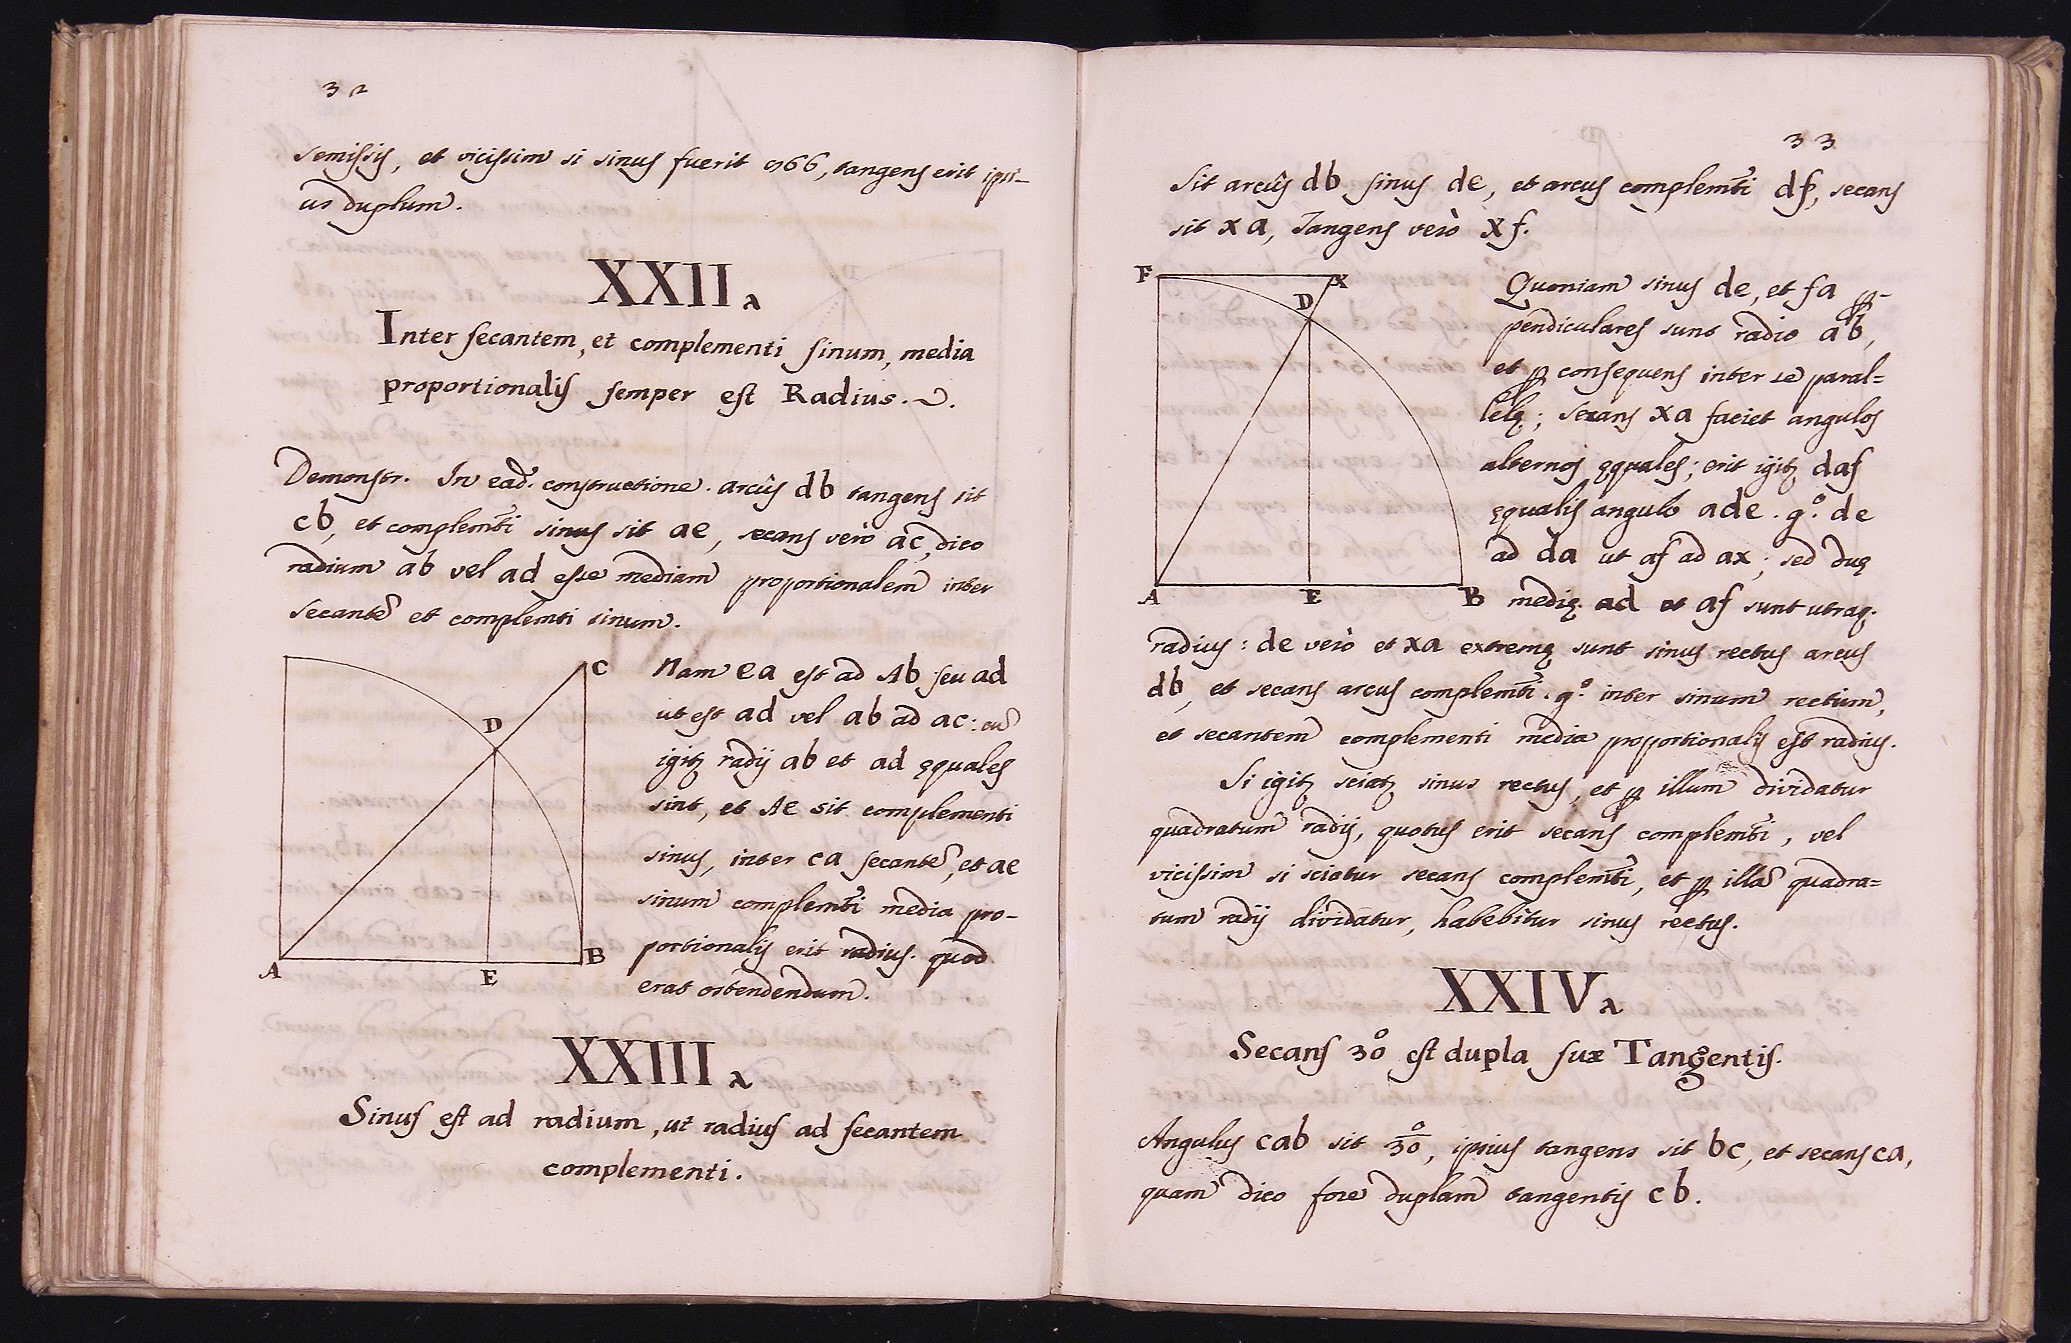 32
semissis, et vicissim si sinus fuerit 0766, tangens erit ipsi-
us duplum.
XXIIa
Inter secantem, et complementi sinum, media
proportionalis semper est Radius.
Demonstr. In ead. constructione. arcûs db tangens sit
cb, et complemti sinus sit ae, secans verò ac, dico
radium ab vel ad esse mediam proportionalem inter
secantẽ et complemti sinum.
C
D
A
E
B
Nam ea est ad Ab seu ad
ut est ad vel ab ad ac: cũ
igitꝫ radij ab et ad ęquales
sint, et Ae sit complementi
sinus, inter ca secantẽ, et ae
sinum complemti media pro-
portionalis erit radius. quod
erat ostendendum.
XXIIIa
Sinus est ad radium, ut radius ad secantem
complementi.
33
Sit arcûs db sinus de, et arcus complemti df, secans
sit xa, Tangens verò xf.
F
X
D
A
E
B
Quoniam sinus de, et fa ꝑ-
pendiculares sunt radio ab,
et ꝑ consequens inter se paral=
lelę; secans xa faciet angulos
alternos ęquales; erit igitꝫ daf
ęqualis angulo ade. gº. de
ad da ut af ad ax; sed duę
medię. ad et af sunt utraq.
radius: de verò et xa extremę sunt sinus rectus arcus
db, et secans arcus complemti. gº. inter sinum rectum,
et secantem complementi media proportionalis est radius.
Si igitꝫ sciatꝫ sinus rectus, et ꝑ illum dividatur
quadratum radij, quotus erit secans complemti, vel
vicissim si sciatur secans complemti, et ꝑ illã quadra=
tum radij dividatur, habebitur sinus rectus.
XXIVa
Secans 30° est dupla suæ Tangentis.
Angulus cab sit 30°, ipsius tangens sit bc, et secans ca,
quam dico fore duplam tangentis cb.